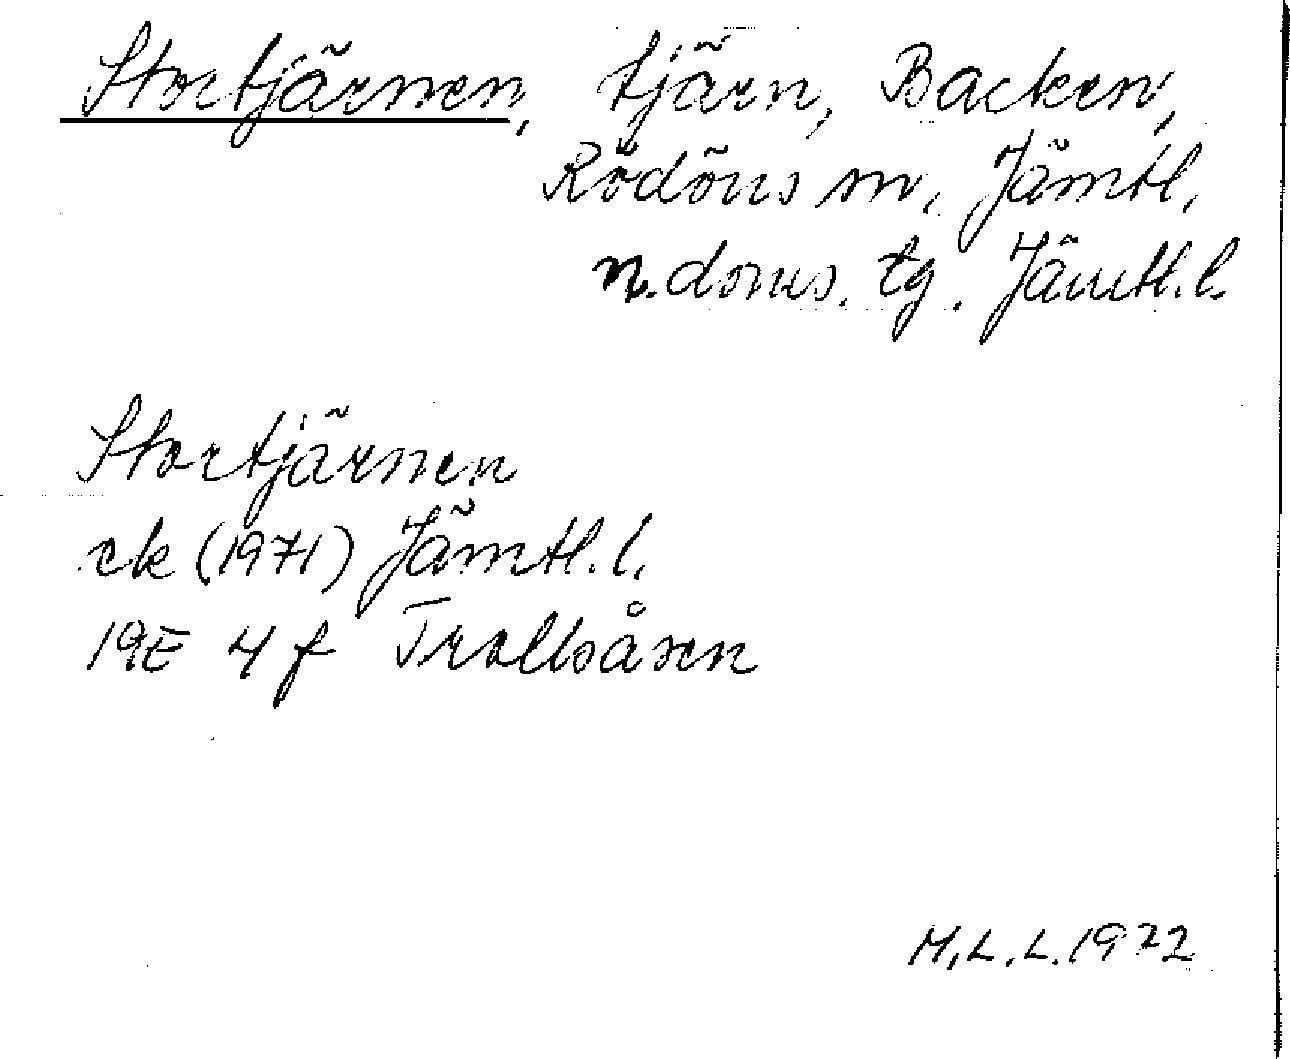 Stortjärnen, tjärn, Backen,
Rödöns sn, Jämtl,
n. doms. tg. Jämtl. l.
Stortjärnen
ek (1971) Jämtl. l.
19E 4f Trollsåsen
M.L.L. 1972